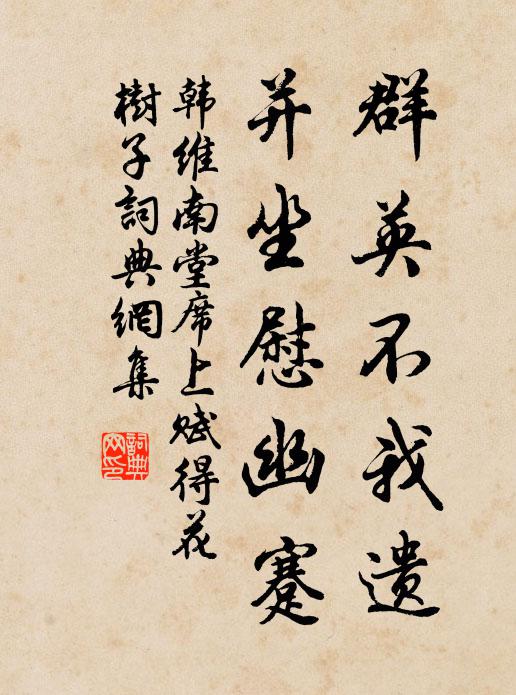 群英不我遗
并坐慰幽蹇
韩维南堂席上赋得花
樹子詞典網集
詞典网印